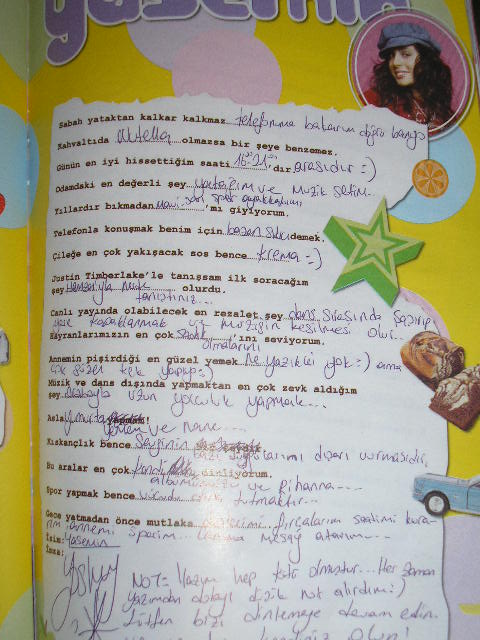 yasemin
Sabah yataktan kalkar kalkmaz telefonuma bakarım doğru banyo
Kahvaltıda Nutella olmazsa bir şeye benzemez.
Günün en iyi hissettiğim saati 16-21'dir arasıdır :)
Odamdaki en değerli şey yatağım ve müzik setim...
Yıllardır bıkmadan mavi-sarı spor ayakkabımı'mı giyiyorum.
Telefonla konuşmak benim için bazen demek.
Çileğe en çok yakışacak sos bence krema :)
Justin Timberlake'le tanışsam ilk soracağım
şey olurdu.
tanıştınız...
Canlı yayında olabilecek en rezalet şey dans sırasında şaşırıp
kapaklanmak ve müziğin kesilmesi olur...
Hayranlarımızın en çok sadık'ını seviyorum.
olmalarını
Annemin pişirdiği en güzel yemek Ne yazıkki yok :) ama
çok güzel kek yapıyo :)
Müzik ve dans dışında yapmaktan en çok zevk aldığım
şey Arabayla uzun yolculuk yapmak...
Asla Yumurta yapmam!
yemem ve nane...
Kıskançlık bence Sevginin
duygularımı dışarı vurmasıdır.
Bu aralar en çok kendi dinliyorum.
albümümüzü ve Rihanna...
Spor yapmak bence tutmaktır...
Gece yatmadan önce mutlaka dişlerimi fırçalarım saatimi kura-
rım annemi öperim... mesaj atarım...
İsim: Yasemin
İmza:
NOT= Yazım hep kötü olmuştur... Her zaman
yazımdan dolayı düşük not alırdım :)
Lütfen bizi dinlemeye devam edin.